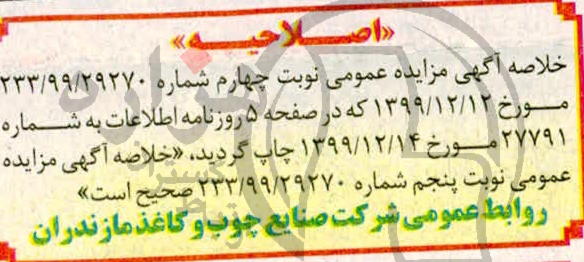 «اصلاحیه»
خلاصه آگهی مزایده عمومی نوبت چهارم شماره ۲۳۳/۹۹/۲۹۲۷۰
مورخ ۱۳۹۹/۱۲/۱۲ که در صفحه ۵ روزنامه اطلاعات به شماره
۲۷۷۹۱ مورخ ۱۳۹۹/۱۲/۱۴ چاپ گردید، «خلاصه آگهی مزایده
عمومی نوبت پنجم شماره ۲۳۳/۹۹/۲۹۲۷۰ صحیح است»
روابط عمومی شرکت صنایع چوب و کاغذ مازندران